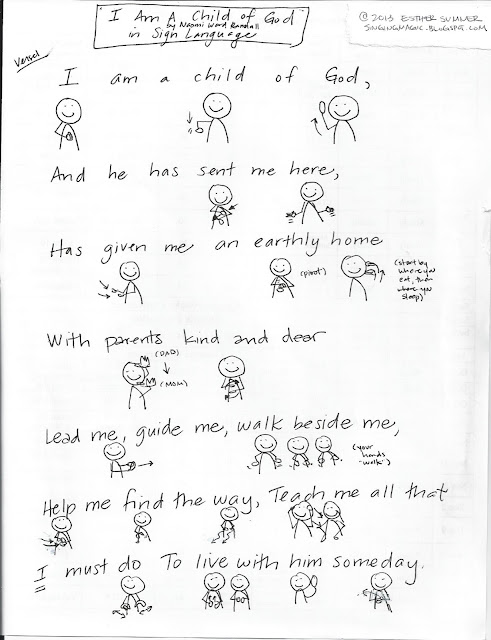 "I Am A Child of God"
by Naomi Ward Randall
in Sign Language
© 2013 ESTHER SUMNER
SINGINGMAGIC.BLOGSPOT.COM
Verse 1
I am a child of God,
And he has sent me here,
Has given me an earthly home
(pivot)
(start by
where you
eat, then
where you
sleep)
With parents kind and dear
(DAD)
(MOM)
Lead me, guide me, walk beside me,
(your
hands
"walk")
Help me find the way, Teach me all that
I must do To live with him someday.